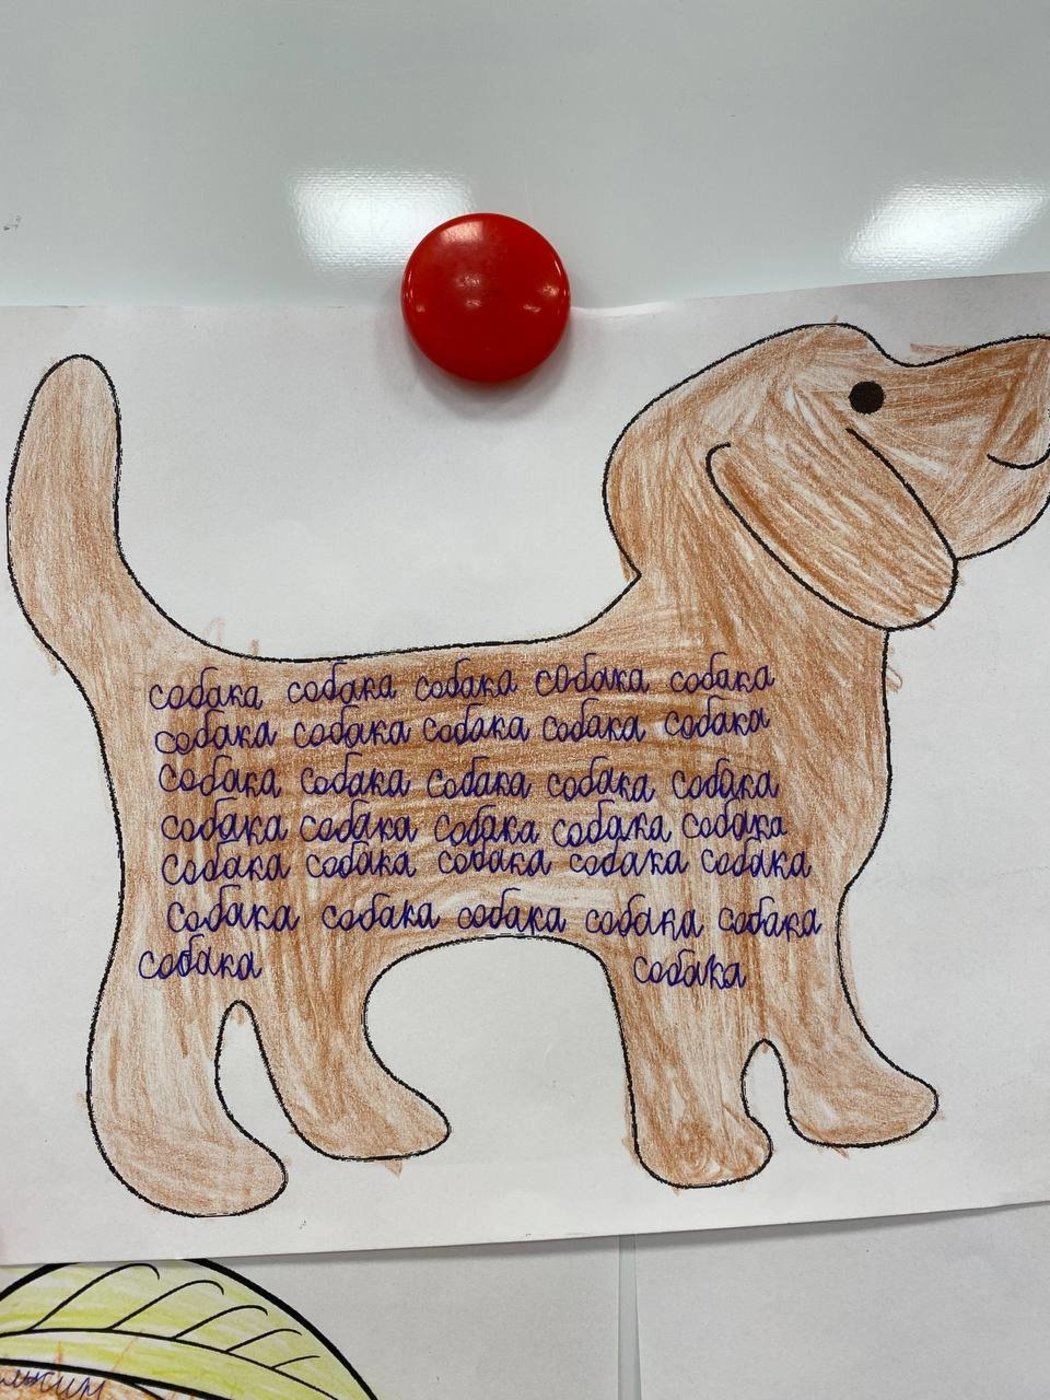 собака собака собака собака собака
собака собака собака собака собака
собака собака собака собака собака
собака собака собака собака собака
собака собака собака собака собака
собака собака собака собака собака
собака собака